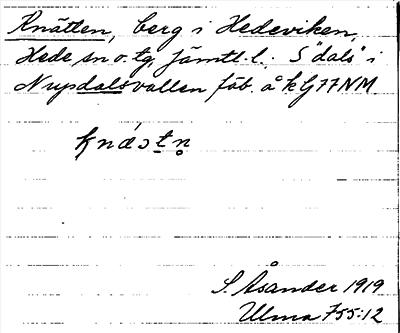 Knätten, berg i Hedeviken,
Hede sn o. tg Jämtl. l. S "dals" i
Nysdalsvallen fäb. å k G77NM
S. Åsander 1919
Ulma 755:12